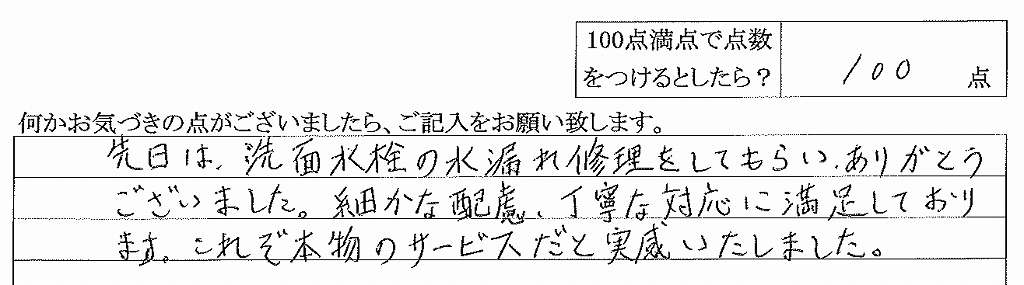 100点満点で点数
をつけるとしたら？
100 点
何かお気づきの点がございましたら、ご記入をお願い致します。
先日は、洗面水栓の水漏れ修理をしてもらい、ありがとう
ございました。細かな配慮、丁寧な対応に満足しており
ます。これぞ本物のサービスだと実感いたしました。